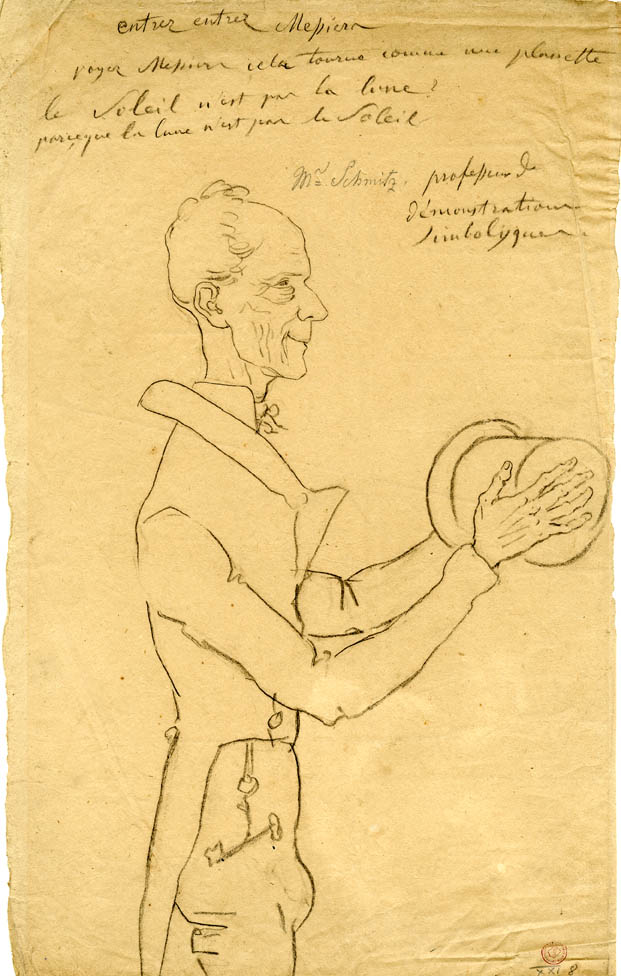 entrez entrez Messieurs
voyez Messieurs cela tourne comme une planette
le Soleil n'est pas la lune ?
parceque la lune n'est pas le Soleil
Mr. Schmitz. professeur de
démonstrations
simbolyques
8